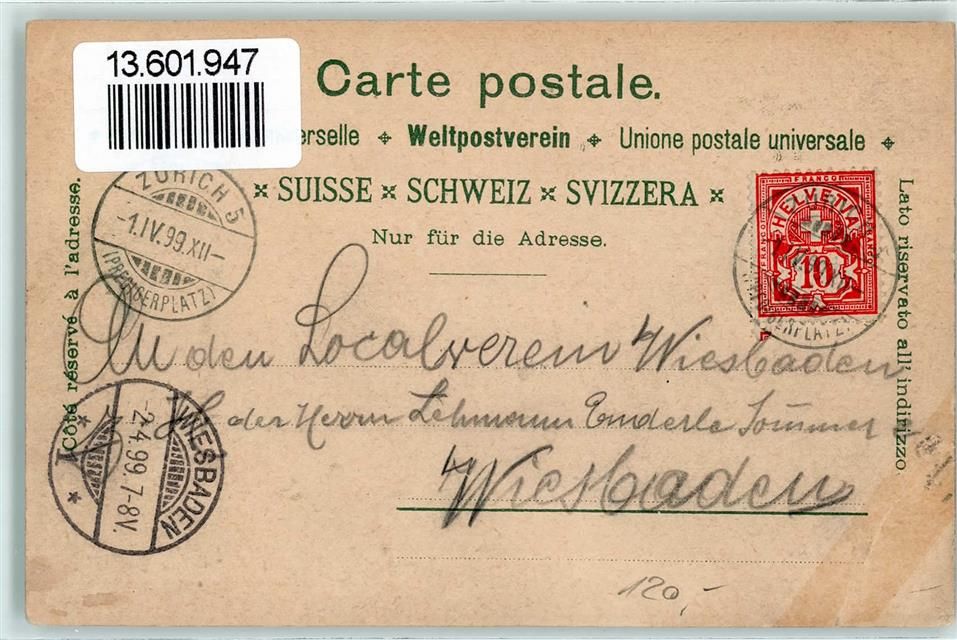 13.601.947
Carte postale.
erselle Weltpostverein Unione postale universale
SUISSE SCHWEIZ SVIZZERA
Nur für die Adresse.
Côté réservé à l'adresse.
Lato riservato all' indirizzo.
ZÜRICH 5
-1.IV.99.XII-
(PREDIGERPLATZ)
FRANCO
HELVETIA
10
An den Localverein Wiesbaden
der Herrn Lehmann Enderle Sommer
Wiesbaden
WIESBADEN
-2.4.99.7-8V.
120,-